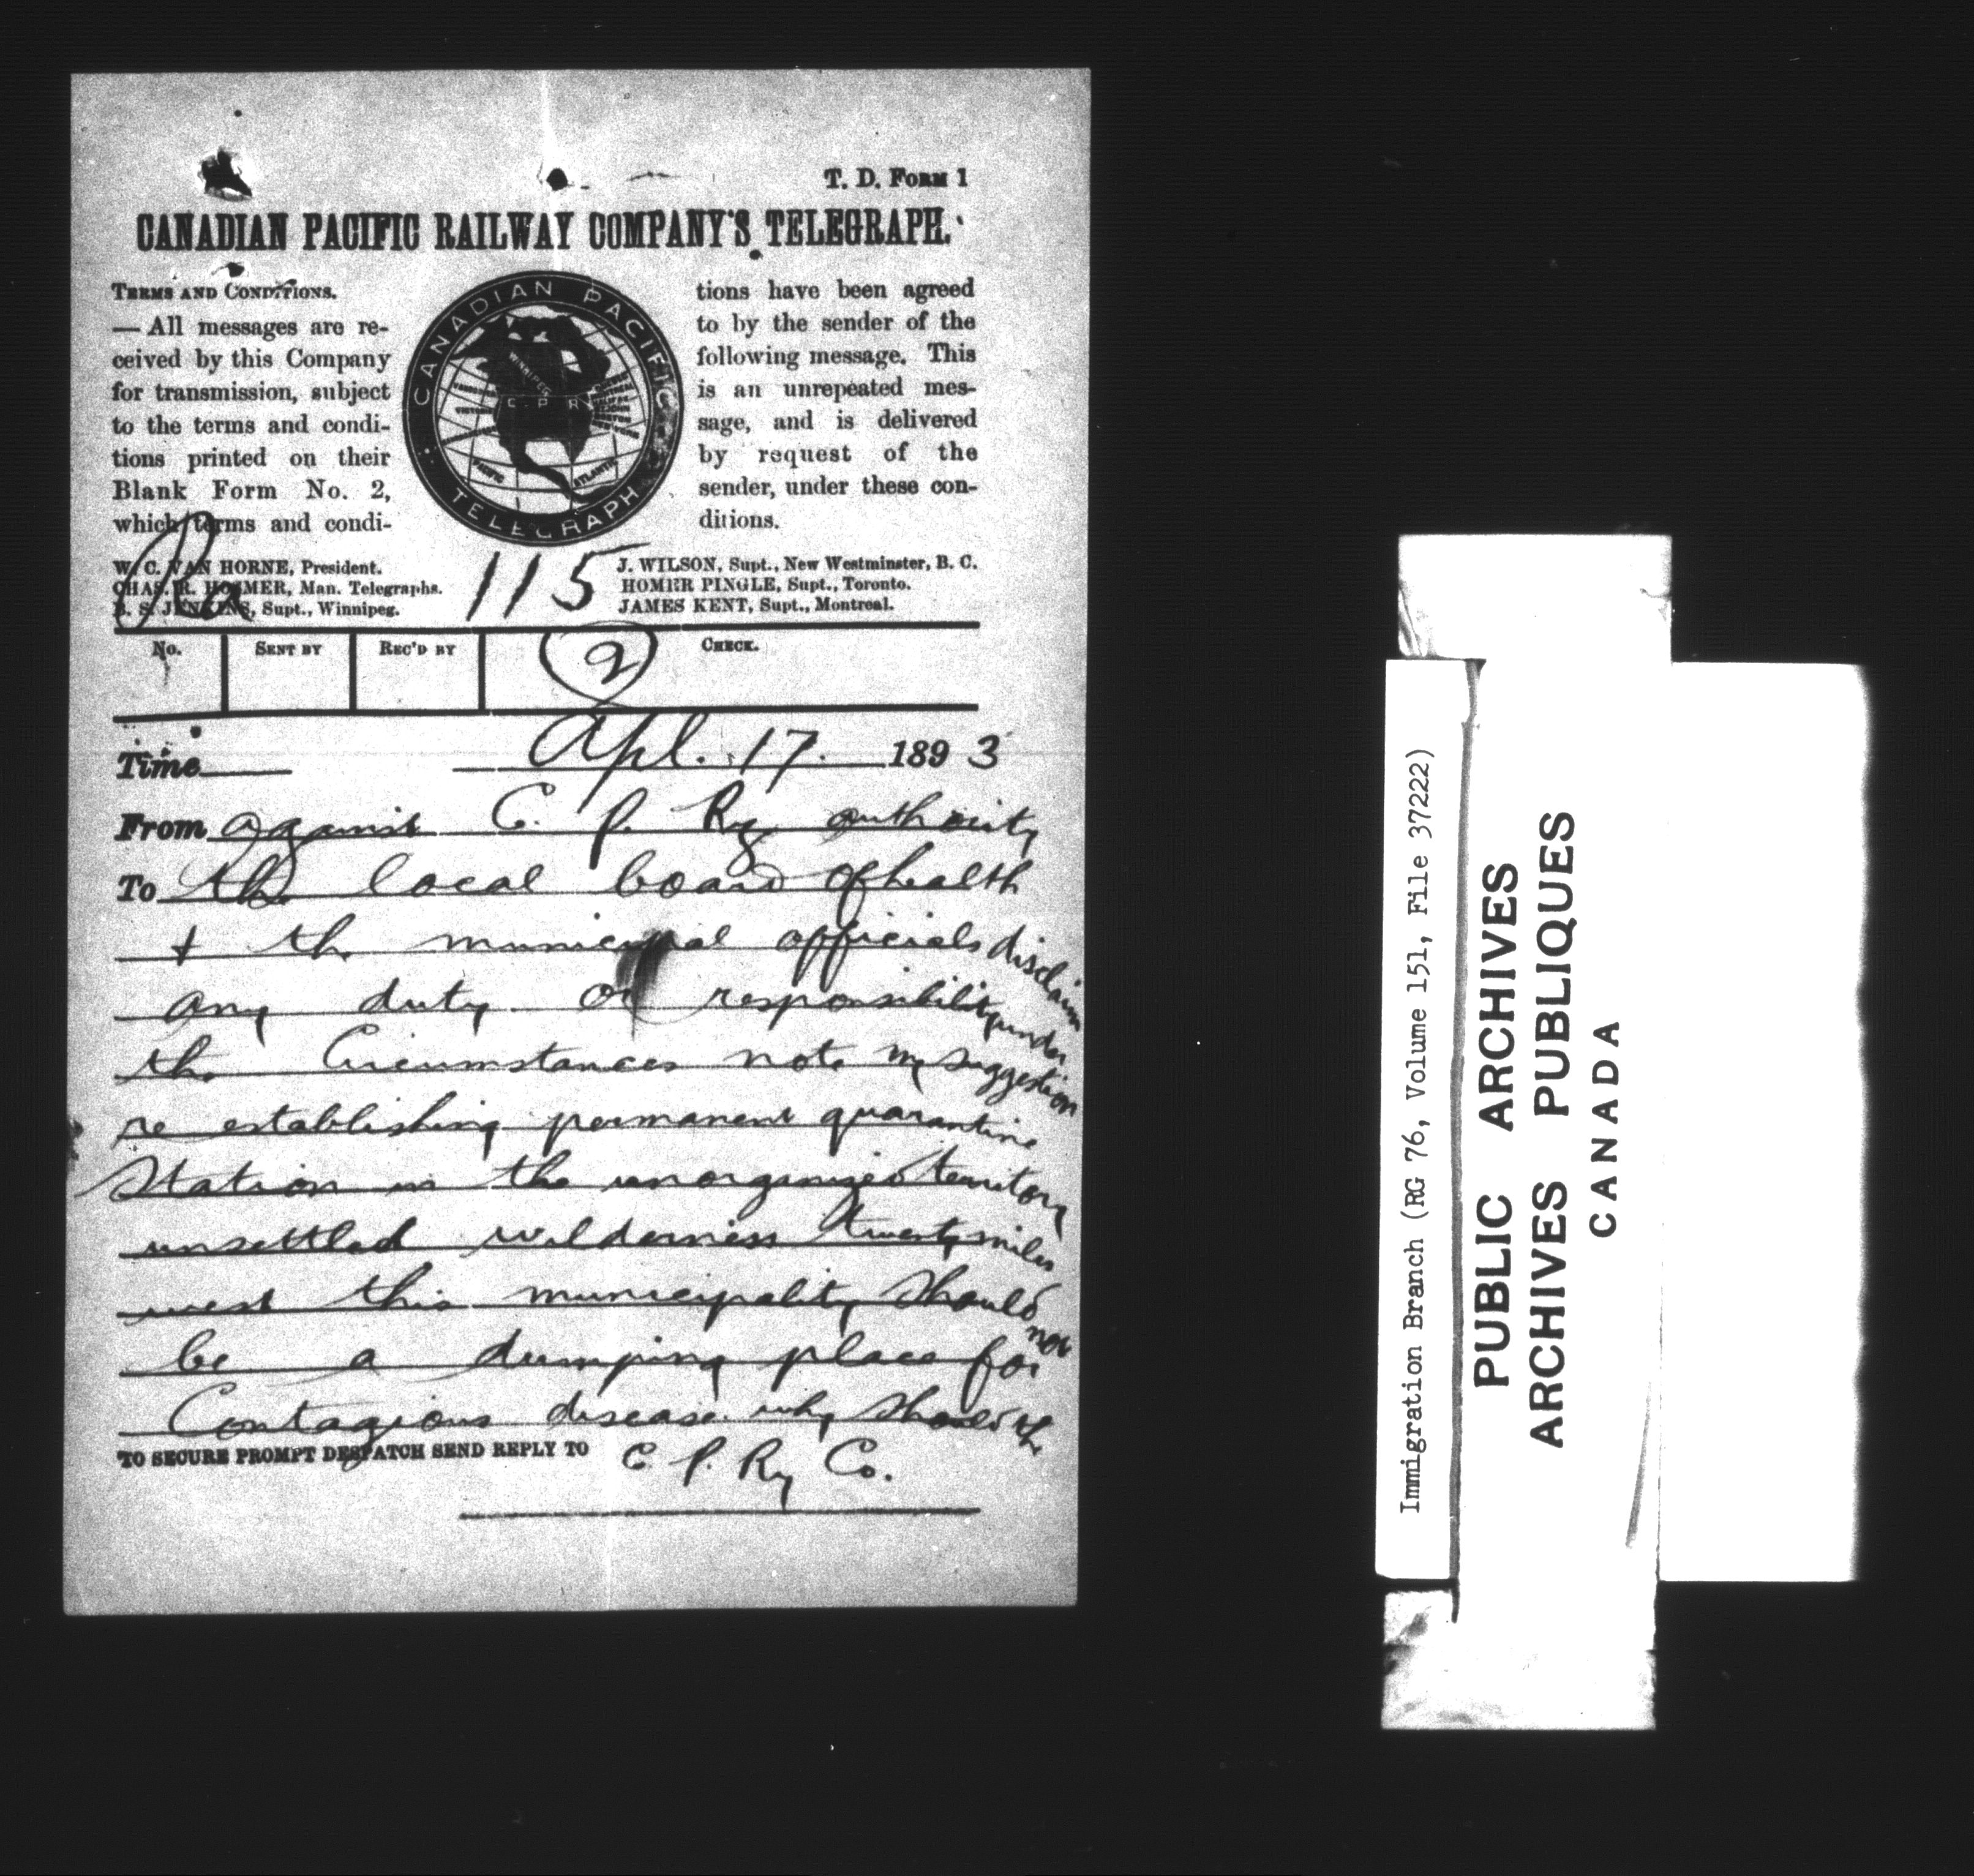 T. D. FORM 1
CANADIAN PACIFIC RAILWAY COMPANY'S TELEGRAPH.
TERMS AND CONDITIONS.
— All messages are re-
ceived by this Company
for transmission, subject
to the terms and condi-
tions printed on their
Blank Form No. 2,
which terms and condi-
CANADIAN PACIFIC
TELEGRAPH
WINNIPEG
C. P. R
PACIFIC
ATLANTIC
tions have been agreed
to by the sender of the
following message. This
is an unrepeated mes-
sage, and is delivered
by request of the
sender, under these con-
ditions.
W. C. VAN HORNE, President.
CHAS. R. HOSMER, Man. Telegraphs.
B. S. JENKINS, Supt., Winnipeg.
115
J. WILSON, Supt., New Westminster, B. C.
HOMER PINGLE, Supt., Toronto.
JAMES KENT, Supt., Montreal.
No. SENT BY REC'D BY 2 CHECK.
Time Apl. 17. 1893
From against C. P. Ry authority
To the local board of health
+ the municipal officials disclaim
any duty or responsibility under
the Circumstances note my suggestion
re establishing permanent quarantine
Station in the unorganized territory
unsettled wilderness twenty miles
west this municipality should not
be a dumping place for
Contagious disease why should the
TO SECURE PROMPT DESPATCH SEND REPLY TO C. P. Ry Co.
Immigration Branch (RG 76, Volume 151, File 37222)
PUBLIC ARCHIVES
ARCHIVES PUBLIQUES
CANADA